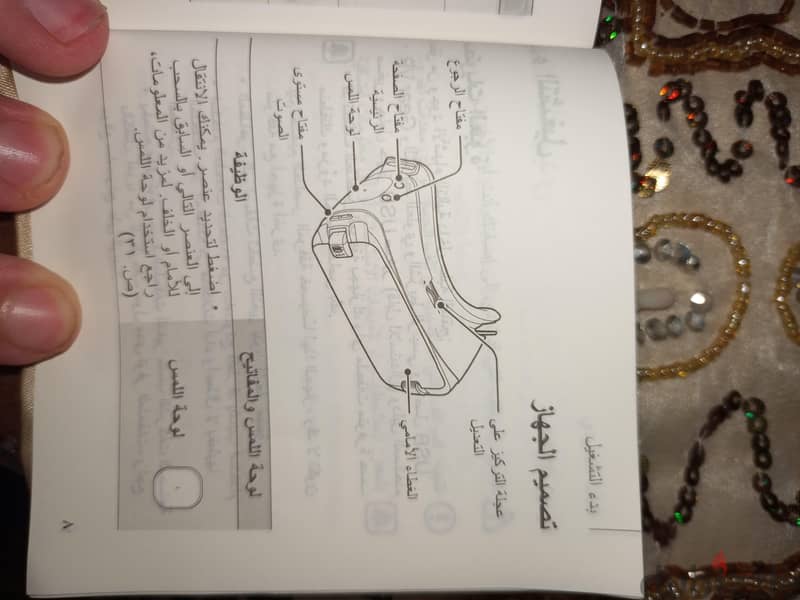 بدء التشغيل
تصميم الجهاز
مفتاح الرجوع
مفتاح الصفحة
الرئيسية
لوحة اللمس
مفتاح مستوى
الصوت
عجلة التركيز على
التعديل
الغطاء الأمامي
لوحة اللمس والمفاتيح
الوظيفة
لوحة اللمس
• اضغط لتحديد عنصر. يمكنك الانتقال
إلى العنصر التالي أو السابق بالسحب
للأمام أو الخلف. لمزيد من المعلومات،
راجع استخدام لوحة اللمس.
(ص. ٢١)
٨